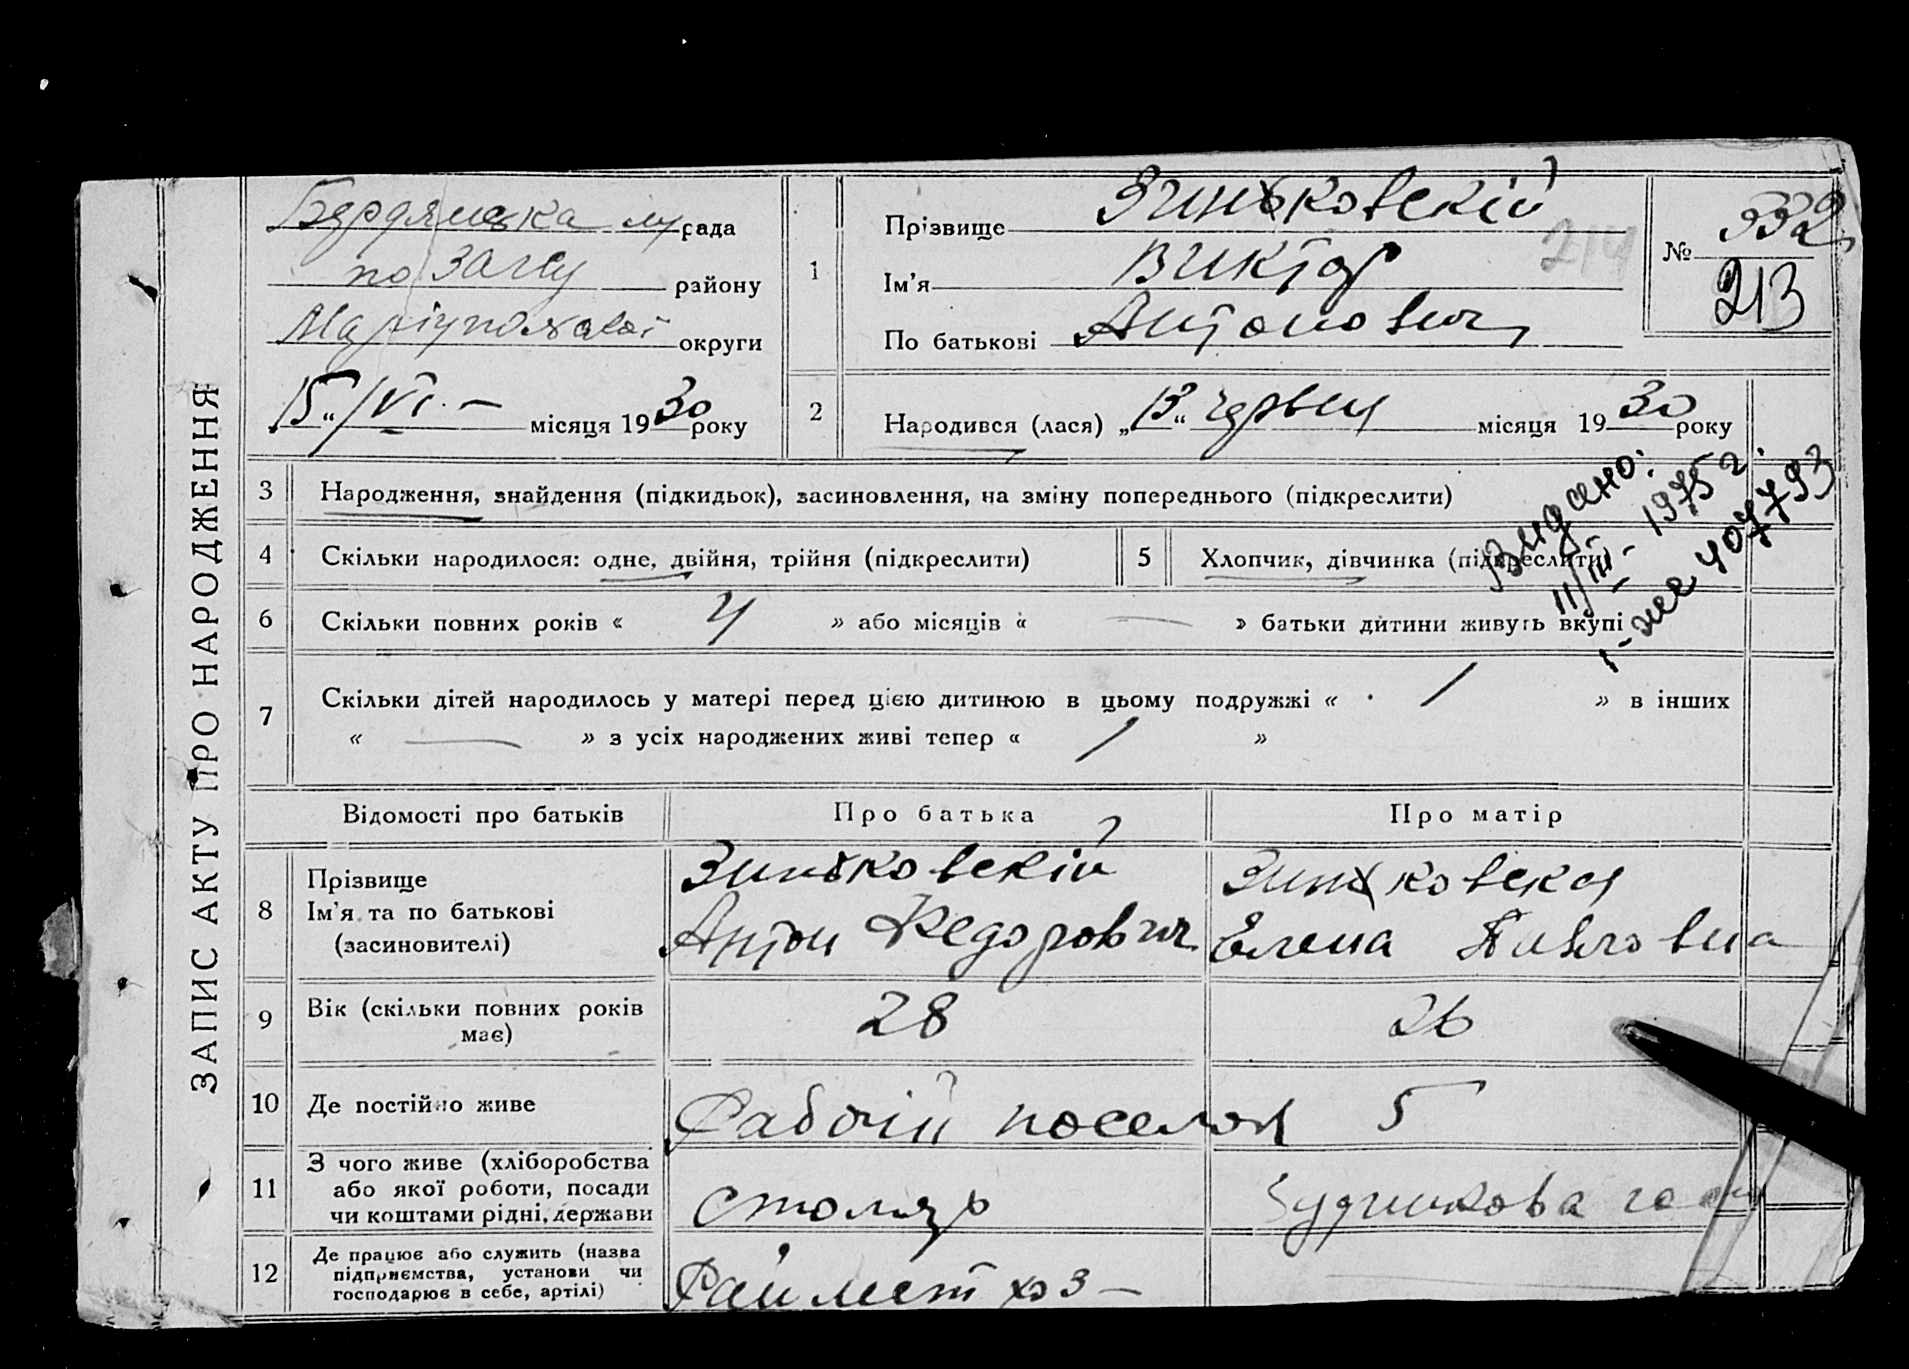 ЗАПИС АКТУ ПРО НАРОДЖЕННЯ
Бердянська м рада
по ЗАГСу району
Маріупольскої округи
15“/VI.– місяця 1930 року
1
Прізвище Зиньковскій
Ім’я Виктор
По батькові Антонович
214
№ 332
213
2
Народився (лася) „13“ червня місяця 1930 року
3 Народження, знайдення (підкидьок), засиновлення, на зміну попереднього (підкреслити)
4 Скільки народилося: одне, двійня, трійня (підкреслити)
5 Хлопчик, дівчинка (підкреслити)
Видано:
11/III- 1975 г.
407793
6 Скільки повних років « 4 » або місяців « — » батьки дитини живуть вкупі
7 Скільки дітей народилось у матері перед цією дитиною в цьому подружжі « 1 » в інших
« — » з усіх народжених живі тепер « 1 »
Відомості про батьків Про батька Про матір
8 Прізвище
Ім’я та по батькові
(засиновителі)
Зиньковскій
Антон Федорович
Зиньковская
Елена Павловна
9 Вік (скільки повних років
має)
28 26
10 Де постійно живе Рабочій поселок 5
11 З чого живе (хліборобства
або якої роботи, посади
чи коштами рідні, держави
столяр
12 Де працює або служить (назва
підприємства, установи чи
господарює в себе, артілі)
Рай мест хоз –